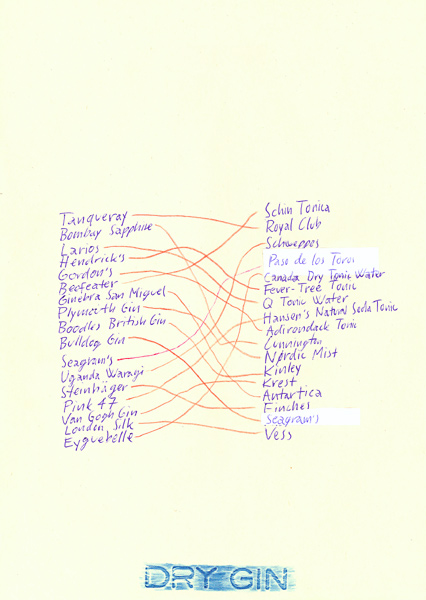 Tanqueray
Bombay Sapphire
Larios
Hendrick's
Gordon's
Beefeater
Ginebra San Miguel
Plymouth Gin
Boodles British Gin
Bulldog Gin
Seagram's
Uganda Waragi
Steinhäger
Pink 47
Van Gogh Gin
London Silk
Eyguebelle
Schin Tonica
Royal Club
Schweppes
Paso de los Toros
Canada Dry Tonic Water
Fever-Tree Tonic
Q Tonic Water
Hansen's Natural Soda Tonic
Adirondack Tonic
Cunnington
Nordic Mist
Kinley
Krest
Antartica
Finches
Seagram's
Vess
DRY GIN